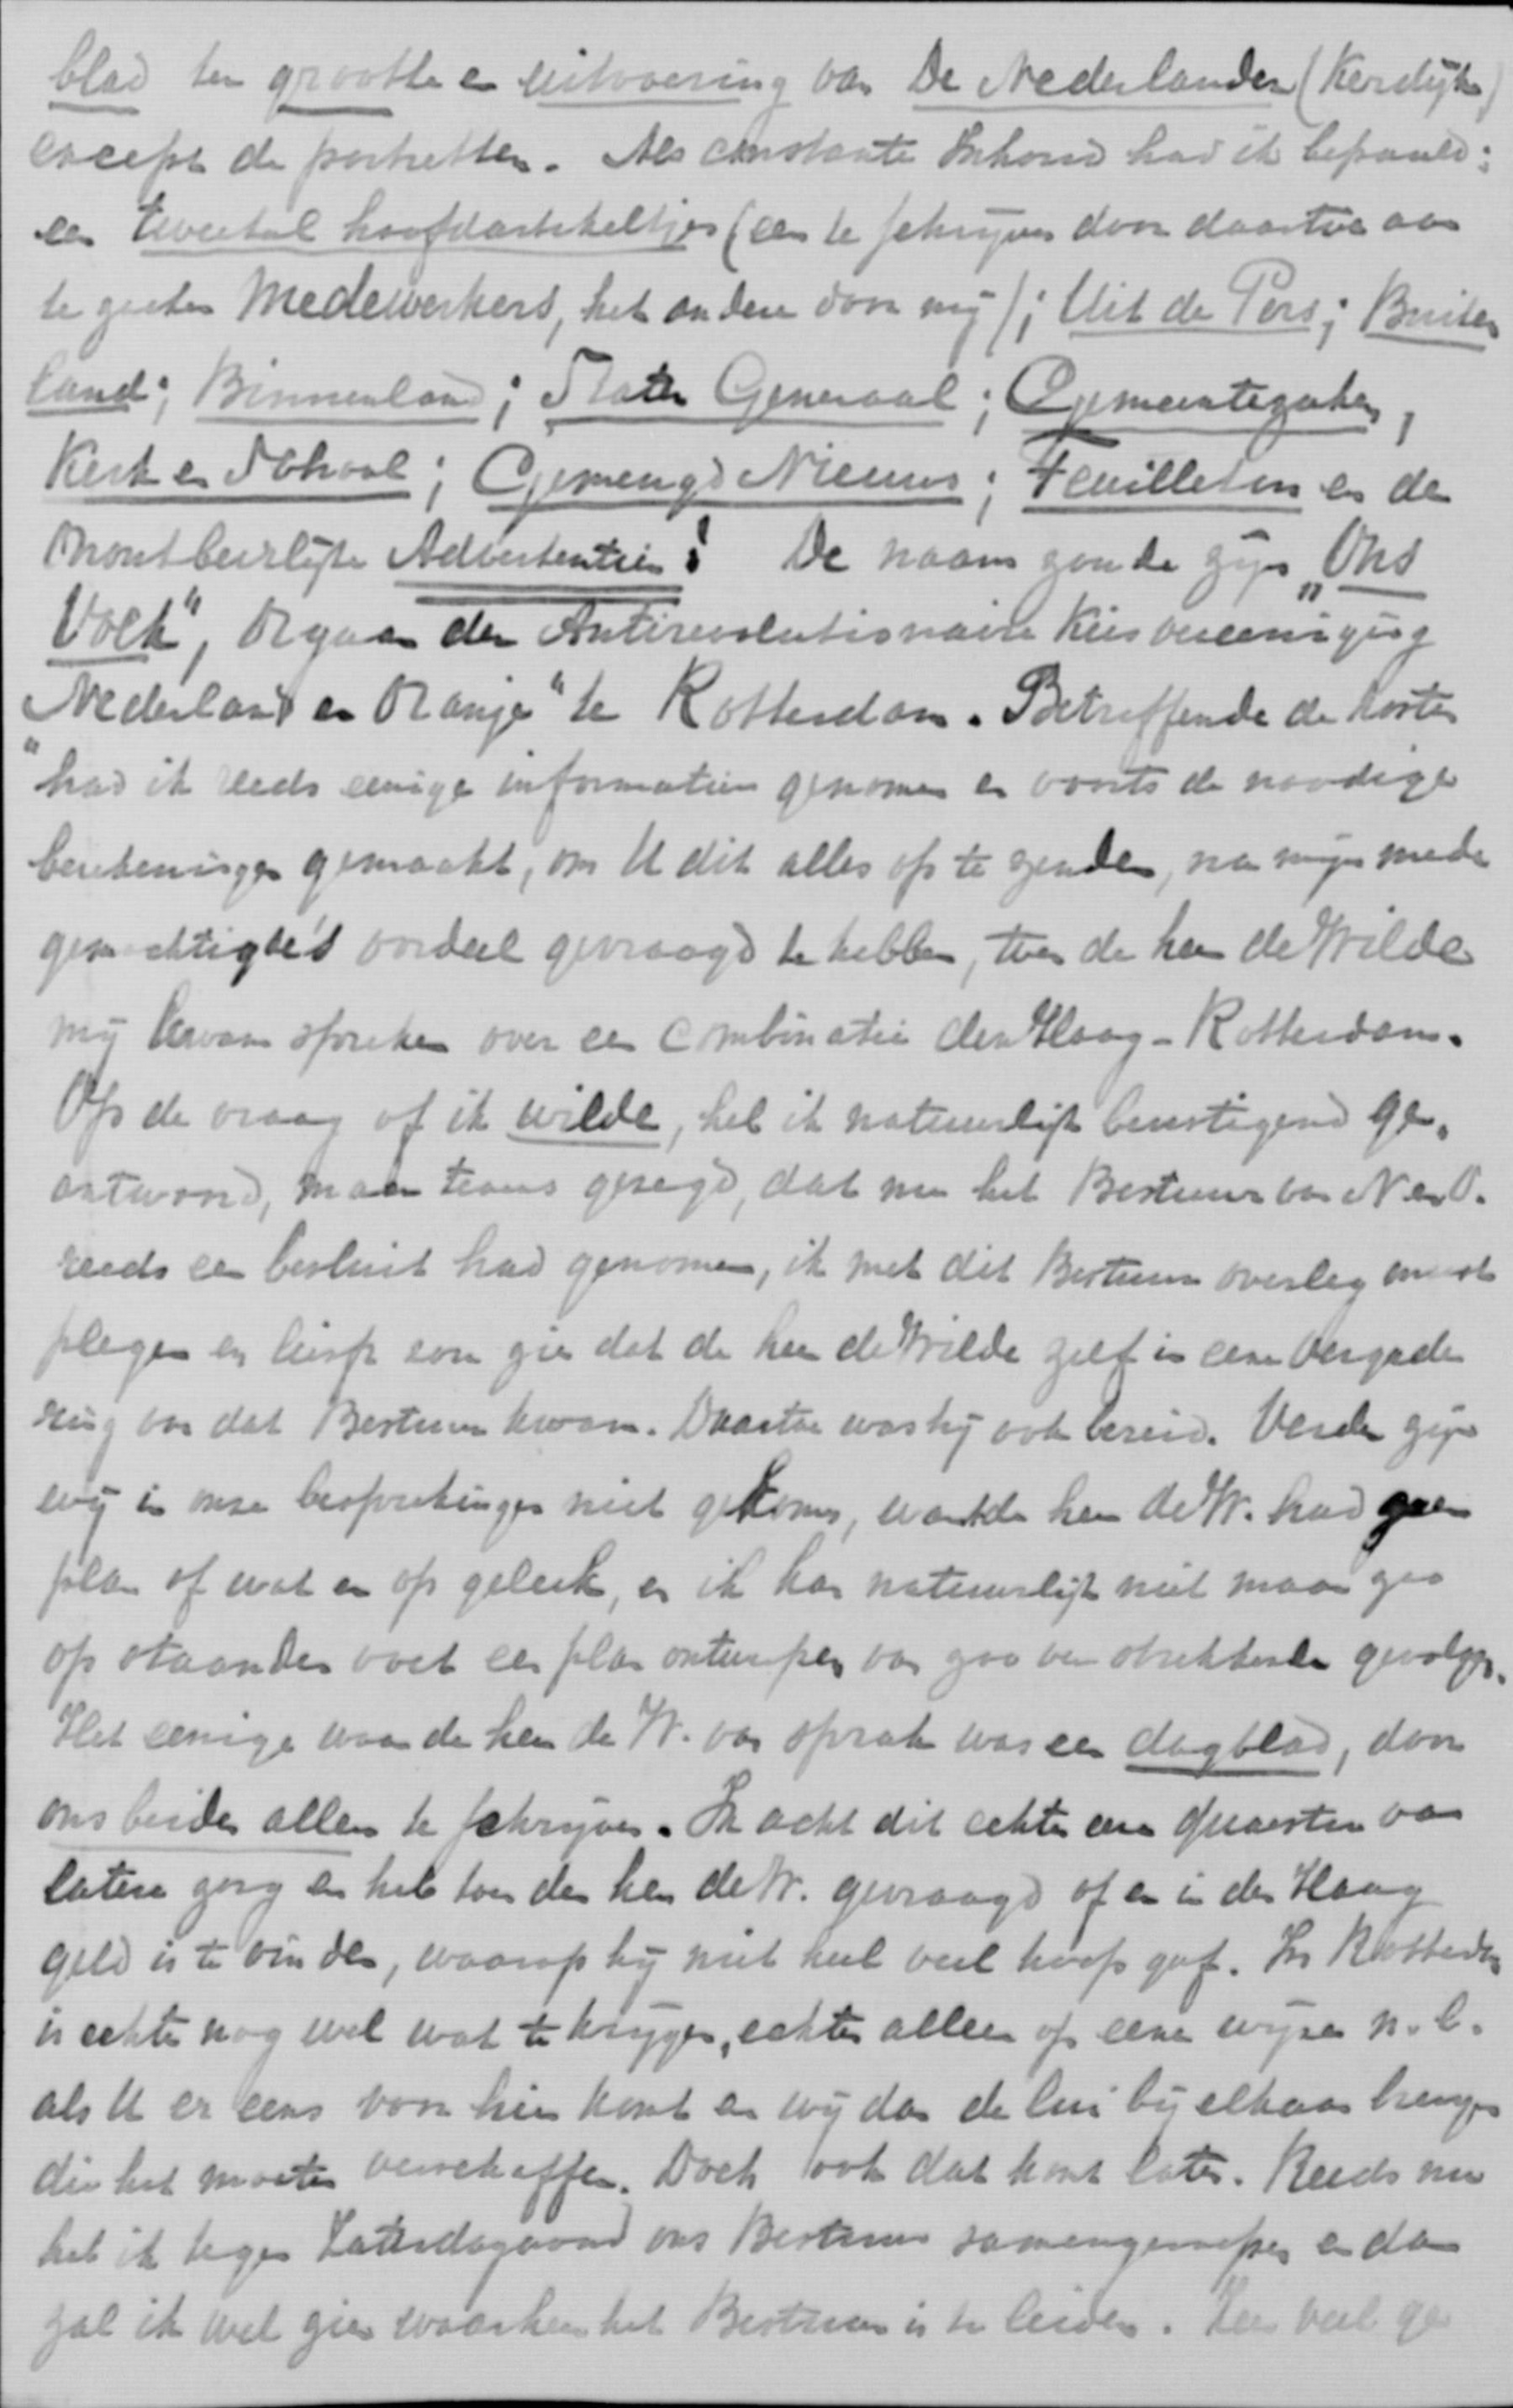 blad ter grootte en uitvoering van De Nederlander (Kerdijk)
except de portretten. Als constante Inhoud had ik bepaald:
een tweetal hoofdartikeltjes (een te schrijven door daartoe aan
te zoeken Medewerkers, het andere door mij); Uit de Pers; Buiten
land; Binnenland; Staten Generaal; Gemeentezaken,
Kerk en School; Gemengd Nieuws; Feuilleton en de
onontbeerlijke Advertentiën! De naam zoude zijn „Ons
Volk", Orgaan der Antirevolutionaire Kiesvereeniging
„Nederland en Oranje" te Rotterdam. Betreffende de kosten
had ik reeds eenige informatiën genomen en voorts de noodige
berekeningen gemaakt, om U dit alles op te zenden, na mijn mede
gemachtigde's oordeel gevraagd te hebben, toen de heer de Wilde
mij kwam spreken over een combinatie den Haag - Rotterdam.
Op de vraag of ik wilde, heb ik natuurlijk bevestigend ge-
antwoord, maar tevens gezegd, dat nu het Bestuur van N en O.
reeds een besluit had genomen, ik met dit Bestuur overleg moest
plegen en liefst zou zien dat de heer de Wilde zelf in eene vergade
ring van dat Bestuur kwam. Daartoe was hij ook bereid. Verder zijn
wij in onze besprekingen niet gekomen, want de heer de W. had geen
plan of wat er op geleek, en ik kan natuurlijk niet maar zoo
op staanden voet een plan ontwerpen van zoo ver strekkende gevolgen.
Het eenige waar de heer de W. van sprak was een dagblad, door
ons beiden alleen te schrijven. Ik acht dit echter eene quaestie van
latere zorg en heb toen den heer de W. gevraagd of er in den Haag
geld is te vinden, waarop hij niet heel veel hoop gaf. In Rotterdam
is echter nog wel wat te krijgen, echter alleen op eene wijze n.l.
als U er eens voor hier komt en wij dan de lui bij elkaar brengen
die het moeten verschaffen. Doch ook dat komt later. Reeds nu
heb ik tegen Zaterdagavond ons Bestuur samengeroepen en dan
zal ik wel zien waarheen het Bestuur is te leiden. Zeer veel ge